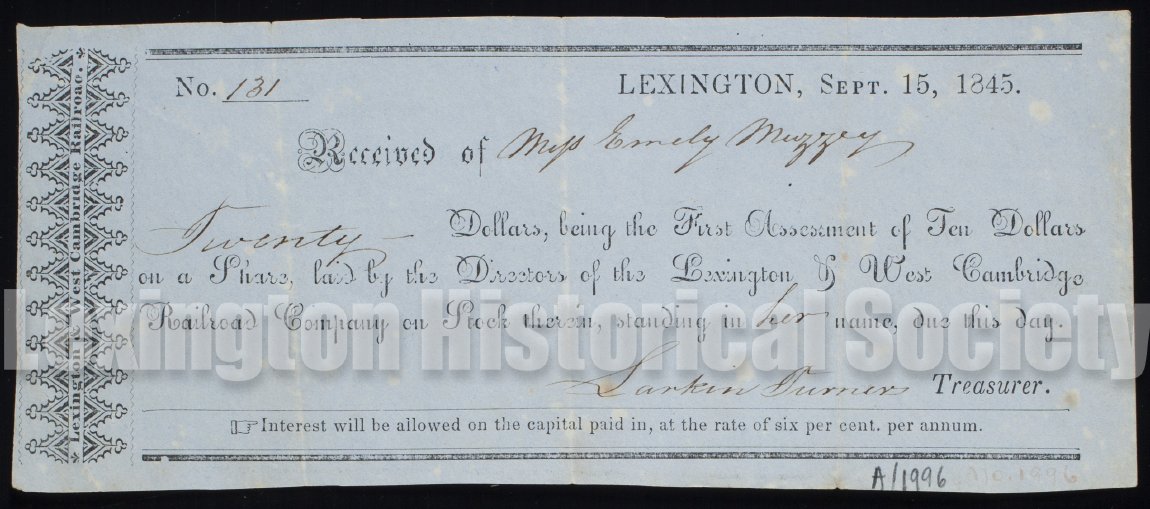 Lexington & West Cambridge Railroad.
No. 131
LEXINGTON, SEPT. 15, 1845.
Received of Miss Emely Muzzey
Twenty Dollars, being the First Assessment of Ten Dollars
on a Share, laid by the Directors of the Lexington & West Cambridge
Railroad Company on Stock therein, standing in her name, due this day.
Lexington Historical Society
Larkin Turner Treasurer.
☞Interest will be allowed on the capital paid in, at the rate of six per cent. per annum.
A/1996